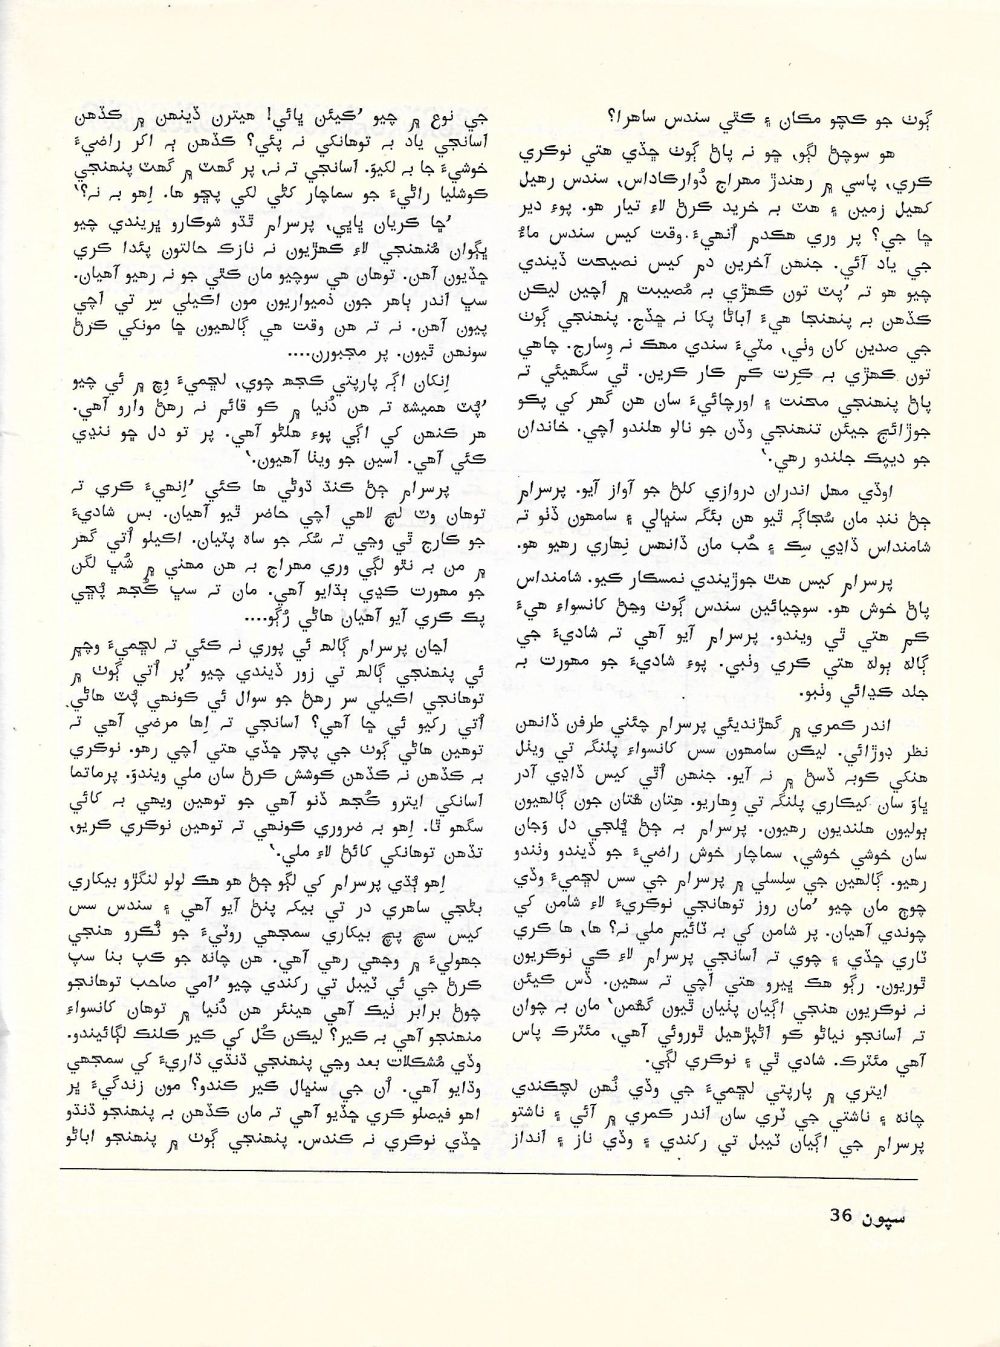 ڳوٺ جو ڪچو مڪان ۽ ڪٿي سندس ساهرا؟
هو سوچڻ لڳو، ڇو نہ پاڻ ڳوٺ ڇڏي هتي نوڪري
ڪري، پاسي ۾ رهندڙ مهراج دُوارڪاداس، سندس رهيل
کهيل زمين ۽ هٽ بہ خريد ڪرڻ لاءِ تيار هو. پوءِ دير
ڇا جي؟ پر وري هڪدم اُنهيءَ وقت کيس سندس ماءُ
جي ياد آئي. جنهن آخرين دم کيس نصيحت ڏيندي
چيو هو تہ ’پٽ تون ڪهڙي بہ مُصيبت ۾ اچين ليڪن
ڪڏهن بہ پنهنجا هيءَ اباڻا پڪا نہ ڇڏج. پنهنجي ڳوٺ
جي صدين کان وٺي، مٽيءَ سندي مهڪ نہ وِسارج. چاهي
تون ڪهڙي بہ ڪِرت ڪم ڪار ڪرين. ٿي سگهيئي تہ
پاڻ پنهنجي محنت ۽ اورچائيءَ سان هن گهر کي پڪو
جوڙائج جيئن تنهنجي وڏن جو نالو هلندو اچي. خاندان
جو ديپڪ جلندو رهي.‘
اوڏي مهل اندران دروازي کلڻ جو آواز آيو. پرسرام
ڄڻ ننڊ مان سُجاڳہ ٿيو هن بئگہ سنڀالي ۽ سامهون ڏٺو تہ
شامنداس ڏاڍي سِڪ ۽ حُب مان ڏانهس نِهاري رهيو هو.
پرسرام کيس هٿ جوڙيندي نمسڪار ڪيو. شامنداس
پاڻ خوش هو. سوچيائين سندس ڳوٺ وڃڻ کانسواءِ هيءُ
ڪم هتي ٿي ويندو. پرسرام آيو آهي تہ شاديءَ جي
ڳالہ ٻولہ هتي ڪري وٺبي. پوءِ شاديءَ جو مهورت بہ
جلد ڪڍائي وٺبو.
اندر ڪمري ۾ گهڙنديئي پرسرام چئني طرفن ڏانهن
نظر ڊوڙائي. ليڪن سامهون سس کانسواءِ پلنگہ تي ويٺل
هنکي ڪوبہ ڏسڻ ۾ نہ آيو. جنهن اُٿي کيس ڏاڍي آدر
ڀاوَ سان ڪيڪاري پلنگہ تي وِهاريو. هِتان هُتان جون ڳالهيون
ٻوليون هلنديون رهيون. پرسرام بہ ڄڻ ڀُلجي دل وَجان
سان خوشي خوشي، سماچار خوش راضيءَ جو ڏيندو وٺندو
رهيو. ڳالهين جي سِلسلي ۾ پرسرام جي سس لڇميءَ وڏي
چوچ مان چيو ’مان روز توهانجي نوڪريءَ لاءِ شامن کي
چوندي آهيان. پر شامن کي بہ ٽائيم ملي نہ؟ ها، ها ڪري
ٽاري ڇڏي ۽ چوي تہ اسانجي پرسرام لاءِ ڪي نوڪريون
ٿوريون. رڳو هڪ ڀيرو هتي اچي تہ سهين. ڏس ڪيئن
نہ نوڪريون هنجي اڳيان پٺيان ٿيون گهُمن‘ مان بہ چوان
تہ اسانجو نياڻو ڪو اڻپڙهيل ٿوروئي آهي، مئٽرڪ پاس
آهي مئٽرڪ. شادي ٿي ۽ نوڪري لڳي.
ايتري ۾ پارپتي لڇميءَ جي وڏي نُهن لچڪندي
چانه ۽ ناشتي جي ٽري سان اندر ڪمري ۾ آئي ۽ ناشتو
پرسرام جي اڳيان ٽيبل تي رکندي ۽ وڏي ناز ۽ انداز
جي نوع ۾ چيو ’ڪيئن ڀائي! هيترن ڏينهن ۾ ڪڏهن
اسانجي ياد بہ توهانکي نہ پئي؟ ڪڏهن ٻہ اکر راضيءَ
خوشيءَ جا بہ لکيوَ. اسانجي تہ نہ، پر گهٽ ۾ گهٽ پنهنجي
ڪوشليا راڻيءَ جو سماچار کڻي لکي پڇو ها. اِهو بہ نہ؟‘
’ڇا ڪريان ڀاڀي، پرسرام ٿڌو شوڪارو ڀريندي چيو
ڀڳوان مُنهنجي لاءِ ڪهڙيون نہ نازڪ حالتون پئدا ڪري
ڇڏيون آهن. توهان هي سوچيو مان ڪٿي جو نہ رهيو آهيان.
سڀ اندر ٻاهر جون ذميواريون مون اڪيلي سِر تي اچي
پيون آهن. نہ تہ هن وقت هي ڳالهيون ڇا مونکي ڪرڻ
سونهن ٿيون. پر مجبورن....
اِنکان اڳہ پارپتي ڪجهہ چوي، لڇميءَ وِچ ۾ ئي چيو
’پُٽ هميشہ تہ هن دُنيا ۾ ڪو قائم نہ رهڻ وارو آهي.
هر ڪنهن کي اڳي پوءِ هلڻو آهي. پر تو دل ڇو ننڍي
ڪئي آهي. اسين جو ويٺا آهيون.‘
پرسرام ڄڻ ڪنڌ ڌوڻي ها ڪئي ’اِنهيءَ ڪري تہ
توهان وٽ لڄ لاهي اچي حاضر ٿيو آهيان. بس شاديءَ
جو ڪارج ٿي وڃي تہ سُک جو ساه پٽيان. اڪيلو اُتي گهر
۾ من بہ نٿو لڳي وري مهراج بہ هن مهني ۾ شُڀ لگن
جو مهورت ڪڍي ٻڌايو آهي. مان تہ سڀ ڪُجهہ پُڇي
پڪ ڪري آيو آهيان هاڻي رُڳو....
اڃان پرسرام ڳالهہ ئي پوري نہ ڪئي تہ لڇميءَ وچ۾
ئي پنهنجي ڳالهہ تي زور ڏيندي چيو ’پر اُتي ڳوٺ ۾
توهانجي اڪيلي سر رهڻ جو سوال ئي ڪونهي پُٽ هاڻي
اُتي رکيو ئي ڇا آهي؟ اسانجي تہ اِها مرضي آهي تہ
توهين هاڻي ڳوٺ جي پچر ڇڏي هتي اچي رهو. نوڪري
بہ ڪڏهن نہ ڪڏهن ڪوشش ڪرڻ سان ملي ويندوَ. پرماتما
اسانکي ايترو ڪُجهہ ڏنو آهي جو توهين ويهي بہ کائي
سگهو ٿا. اِهو بہ ضروري ڪونهي تہ توهين نوڪري ڪريو،
تڏهن توهانکي کائڻ لاءِ ملي.‘
اِهو ٻُڌي پرسرام کي لڳو ڄڻ هو هڪ لولو لنگڙو بيکاري
بڻجي ساهري در تي بيک پنڻ آيو آهي ۽ سندس سس
کيس سچ پچ بيکاري سمجهي روٽيءَ جو ٽُڪرو هنجي
جهوليءَ ۾ وجهي رهي آهي. هن چانہ جو ڪپ بنا سپ
ڪرڻ جي ئي ٽيبل تي رکندي چيو ’امي صاحب توهانجو
چوڻ برابر ٺيڪ آهي هينئر هن دُنيا ۾ توهان کانسواءِ
منهنجو آهي بہ ڪير؟ ليڪن ڪُل کي ڪير ڪلنڪ لڳائيندو.
وڏي مُشڪلات بعد وڃي پنهنجي ڌنڌي ڌاريءَ کي سمجهي
وڌايو آهي. اُن جي سنڀال ڪير ڪندو؟ مون زندگيءَ ڀر
اهو فيصلو ڪري ڇڏيو آهي تہ مان ڪڏهن بہ پنهنجو ڌنڌو
ڇڏي نوڪري نہ ڪندس. پنهنجي ڳوٺ ۾ پنهنجو اباڻو
سپون 36